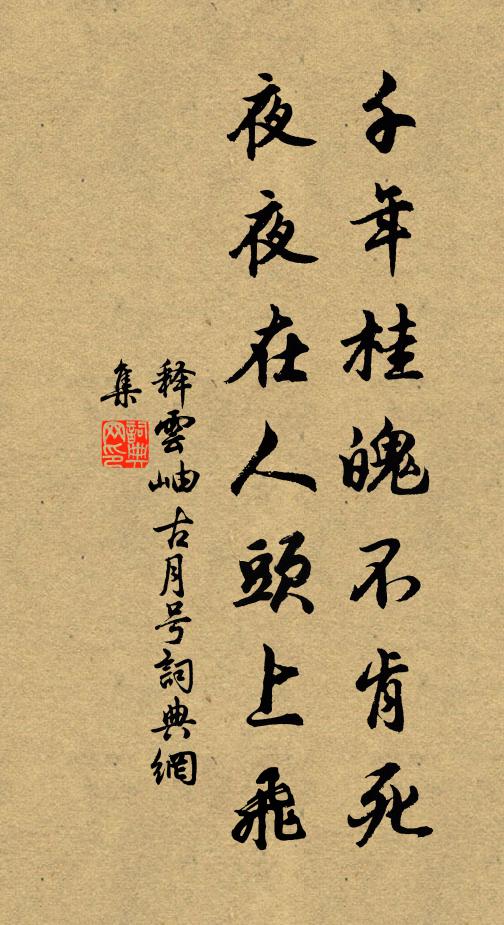 千年桂魄不肯死
夜夜在人頭上飛
释雲岫古月号詞典網
集
詞典
网印